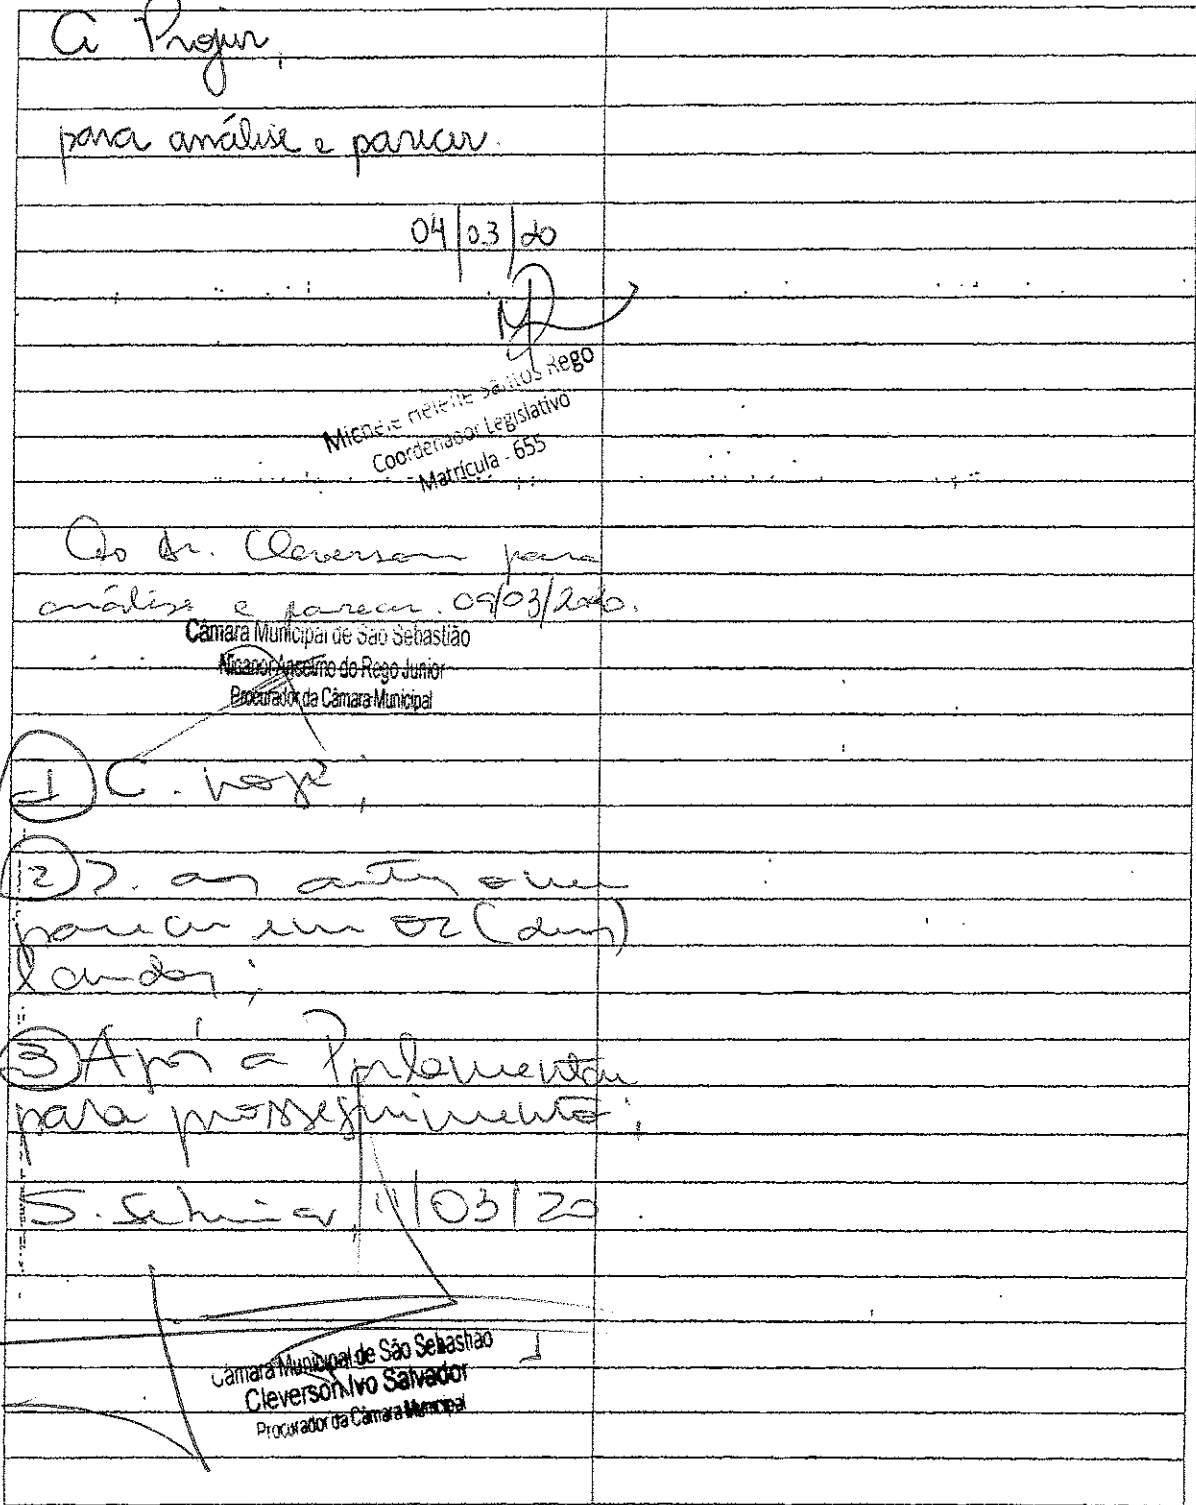 A Projur,
para análise e parecer.
04/03/20
Michele Helene Santos Rego
Coordenador Legislativo
Matrícula - 655
Ao Dr. Cleverson para
análise e parecer. 09/03/2020.
Câmara Municipal de São Sebastião
Nicanor Anselmo do Rego Junior
Procurador da Câmara Municipal
1 C.
2 J. aos autos
parecer em 02 (duas)
laudas;
3 Após a Parlamentar
para prosseguimento;
S. Sebastião, 11/03/20.
Câmara Municipal de São Sebastião
Cleverson Ivo Salvador
Procurador da Câmara Municipal